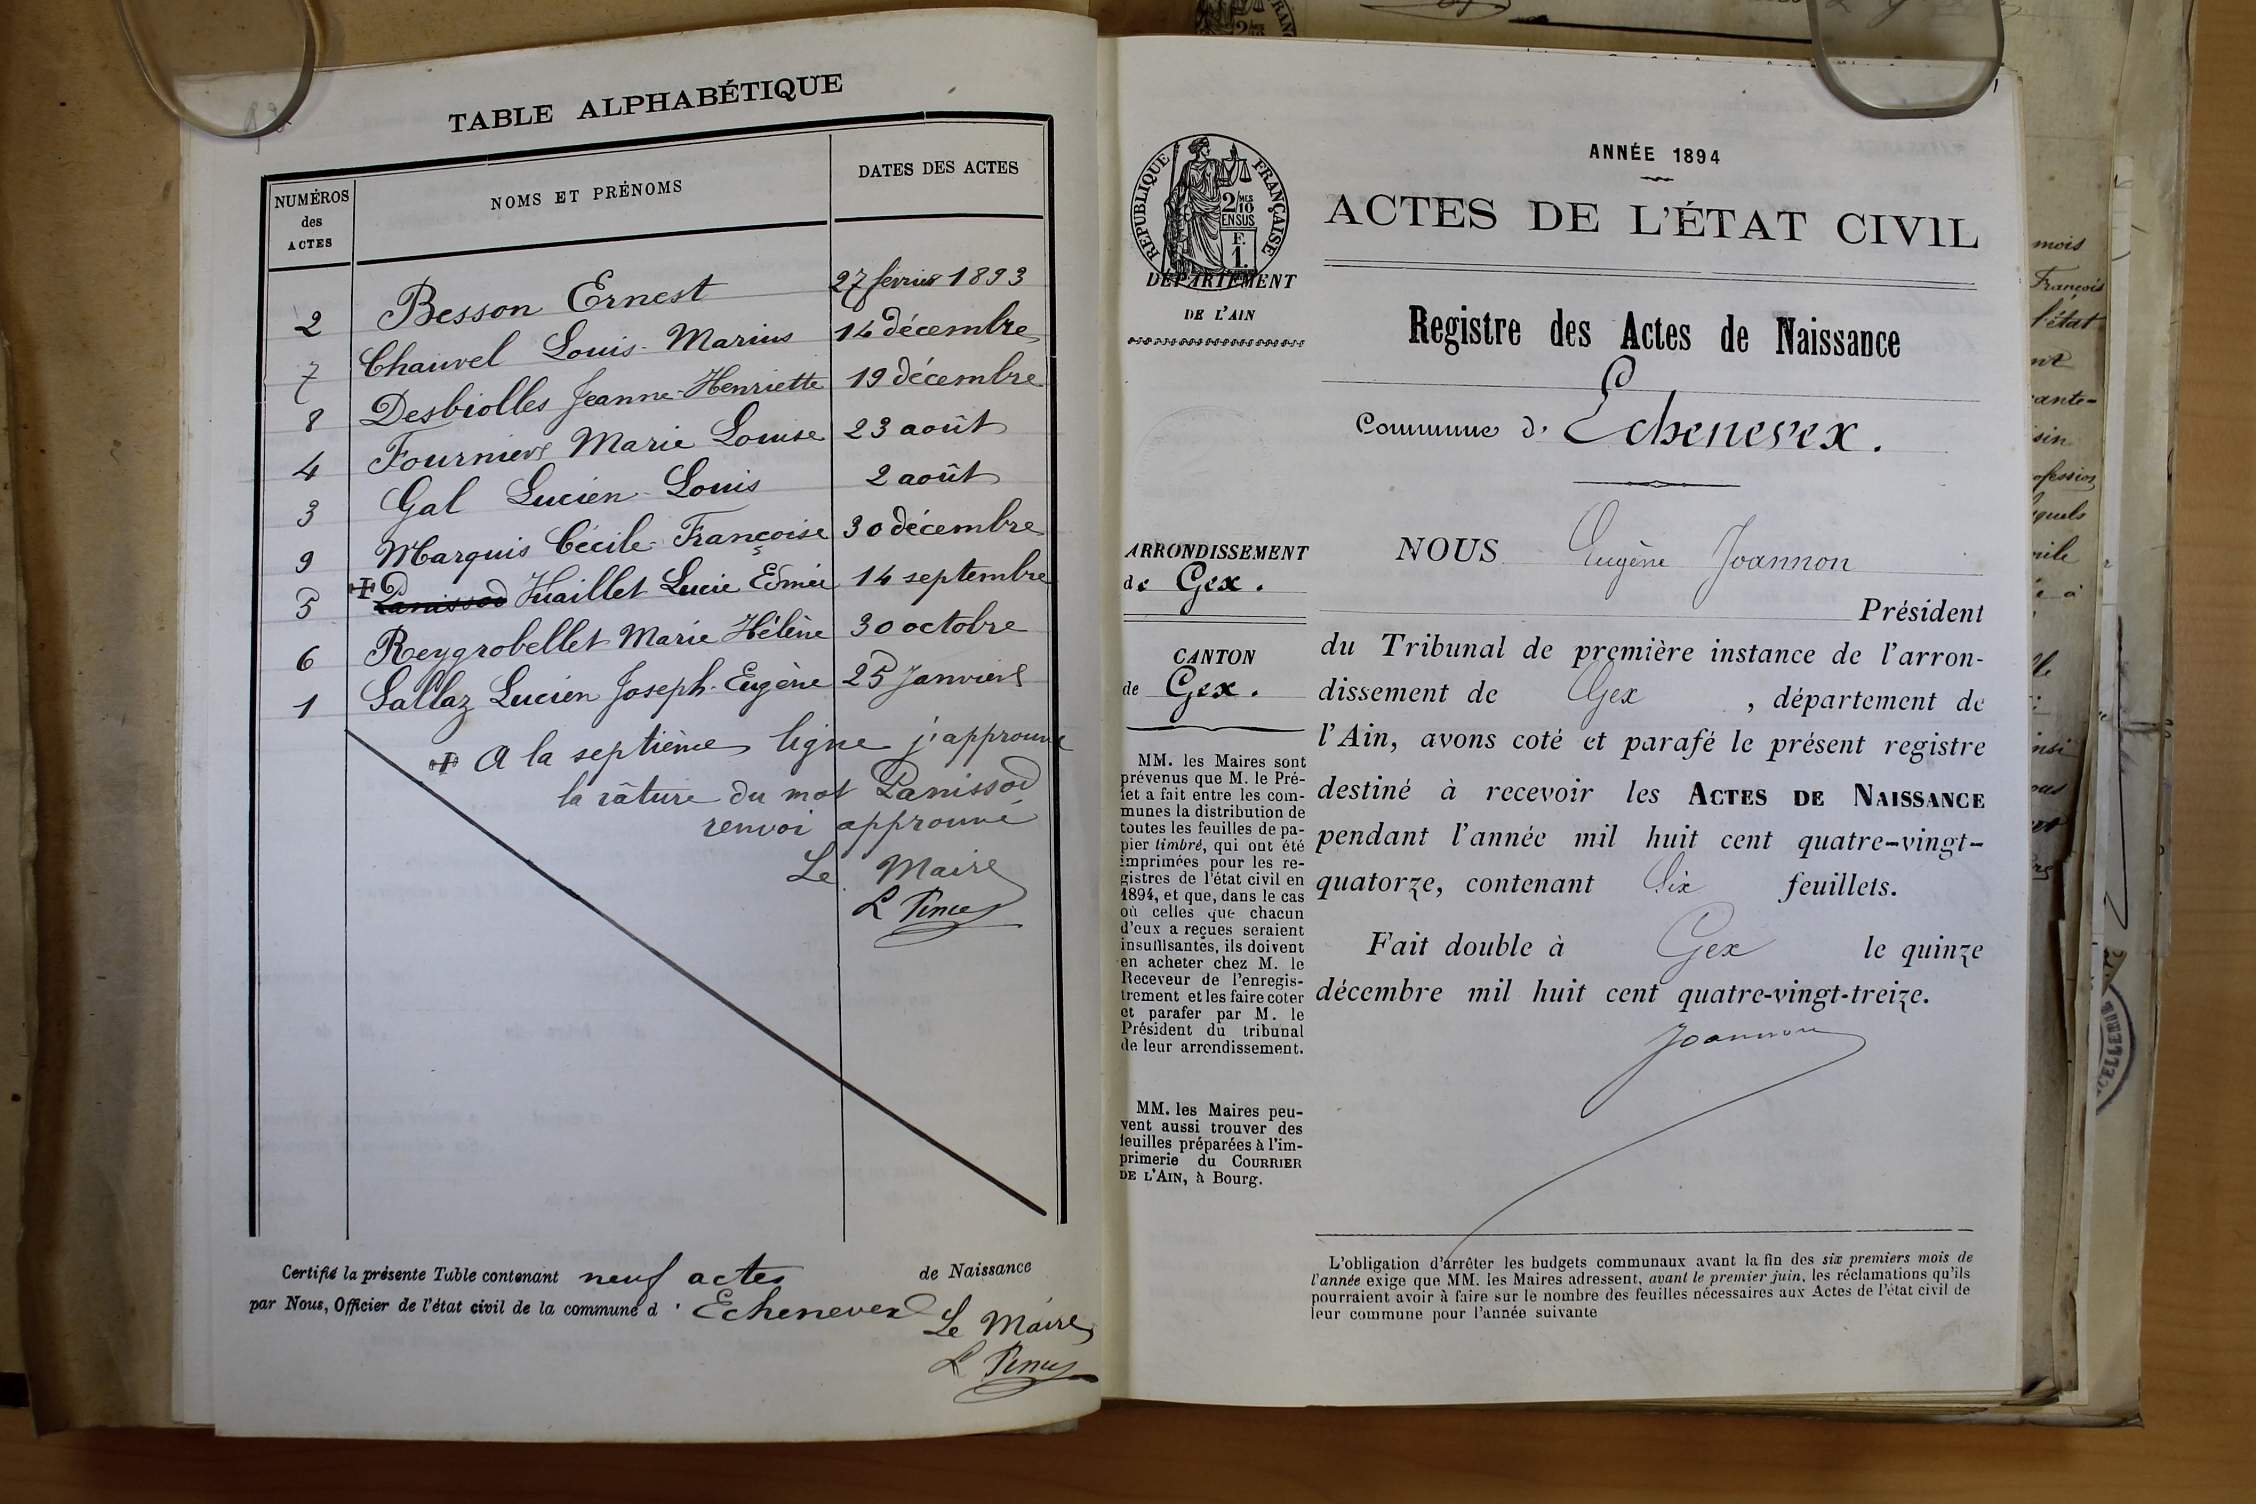 TABLE ALPHABÉTIQUE
NUMÉROS
des
ACTES
NOMS ET PRÉNOMS
DATES DES ACTES
2 Besson Ernest 27 fevrier 1893
7 Chauvel Louis-Marius 14 décembre
8 Desbiolles Jeanne-Henriette 19 décembre
4 Fournier Marie Louise 23 août
3 Gal Lucien-Louis 2 août
9 Marquis Cécile-Françoise 30 décembre
5 Panissod Huaillet Lucie Edmée 14 septembre
6 Reygrobellet Marie Hélène 30 octobre
1 Sallaz Lucien Joseph-Eugène 25 Janvier
A la septième ligne j'approuve
la râture du mot Panissod
renvoi approuvé
Le Maire
Certifié la présente Table contenant neuf actes de Naissance
par Nous, Officier de l'état civil de la commune d' Echenevex
Le Maire
RÉPUBLIQUE FRANÇAISE
2/10 MES
EN SUS
F.
1.
DÉPARTEMENT
DE L'AIN
ARRONDISSEMENT
de Gex.
CANTON
de Gex.
MM. les Maires sont
prévenus que M. le Pré-
fet a fait entre les com-
munes la distribution de
toutes les feuilles de pa-
pier timbré, qui ont été
imprimées pour les re-
gistres de l'état civil en
1894, et que, dans le cas
où celles que chacun
d'eux a reçues seraient
insuffisantes, ils doivent
en acheter chez M. le
Receveur de l'enregis-
trement et les faire coter
et parafer par M. le
Président du tribunal
de leur arrondissement.
MM. les Maires peu-
vent aussi trouver des
feuilles préparées à l'im-
primerie du COURRIER
DE L'AIN, à Bourg.
1
ANNÉE 1894
ACTES DE L'ÉTAT CIVIL
Registre des Actes de Naissance
Commune d' Echenevex.
NOUS Eugène Joannon
Président
du Tribunal de première instance de l'arron-
dissement de Gex, département de
l'Ain, avons coté et parafé le présent registre
destiné à recevoir les ACTES DE NAISSANCE
pendant l'année mil huit cent quatre-vingt-
quatorze, contenant Six feuillets.
Fait double à Gex le quinze
décembre mil huit cent quatre-vingt-treize.
Joannon
L'obligation d'arrêter les budgets communaux avant la fin des six premiers mois de
l'année exige que MM. les Maires adressent, avant le premier juin, les réclamations qu'ils
pourraient avoir à faire sur le nombre des feuilles nécessaires aux Actes de l'état civil de
leur commune pour l'année suivante
mois
François
l'état